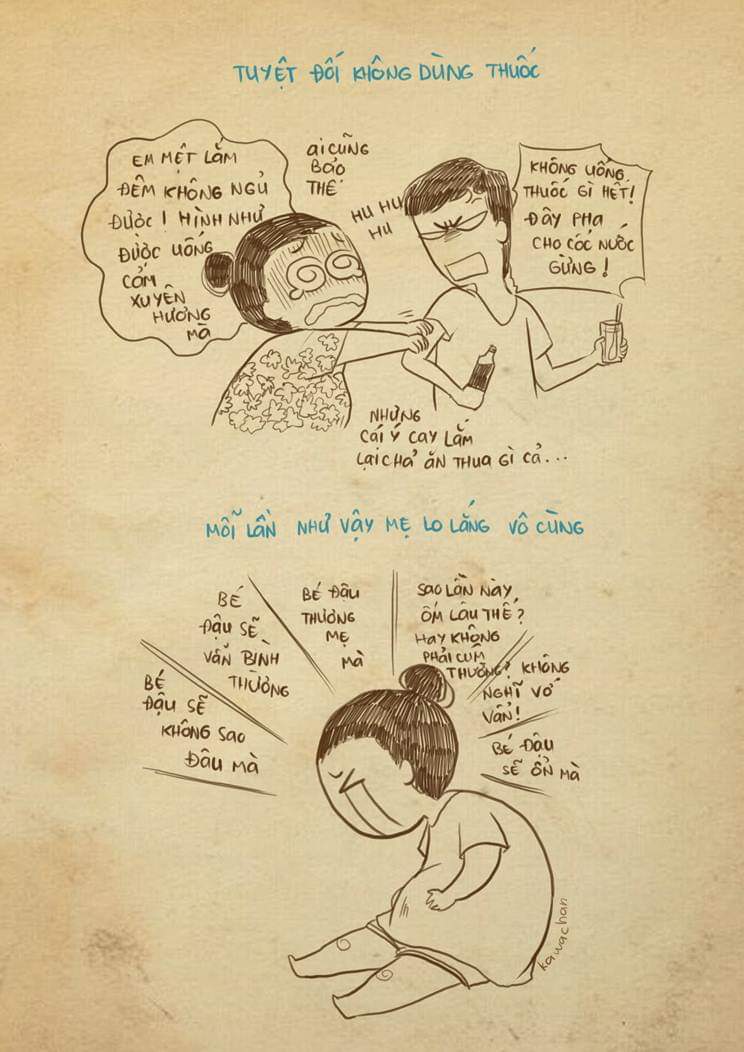 TUYỆT ĐỐI KHÔNG DÙNG THUỐC
EM MỆT LẮM
ĐÊM KHÔNG NGỦ
ĐƯỢC! HÌNH NHƯ
ĐƯỢC UỐNG
CẢM
XUYÊN
HƯƠNG
MÀ
AI CŨNG
BẢO
THẾ
HU HU
HU
KHÔNG UỐNG
THUỐC GÌ HẾT!
ĐÂY PHA
CHO CỐC NƯỚC
GỪNG!
NHƯNG
CÁI Ý CAY LẮM
LẠI CHẢ ĂN THUA GÌ CẢ...
MỖI LẦN NHƯ VẬY MẸ LO LẮNG VÔ CÙNG
BÉ
ĐẬU SẼ
KHÔNG SAO
ĐÂU MÀ
BÉ
ĐẬU SẼ
VẪN BÌNH
THƯỜNG
BÉ ĐẬU
THƯƠNG
MẸ
MÀ
SAO LẦN NÀY
ỐM LÂU THẾ?
HAY KHÔNG
PHẢI CÚM
THƯỜNG? KHÔNG
NGHĨ VỚ
VẨN!
BÉ ĐẬU
SẼ ỔN MÀ
kawachan